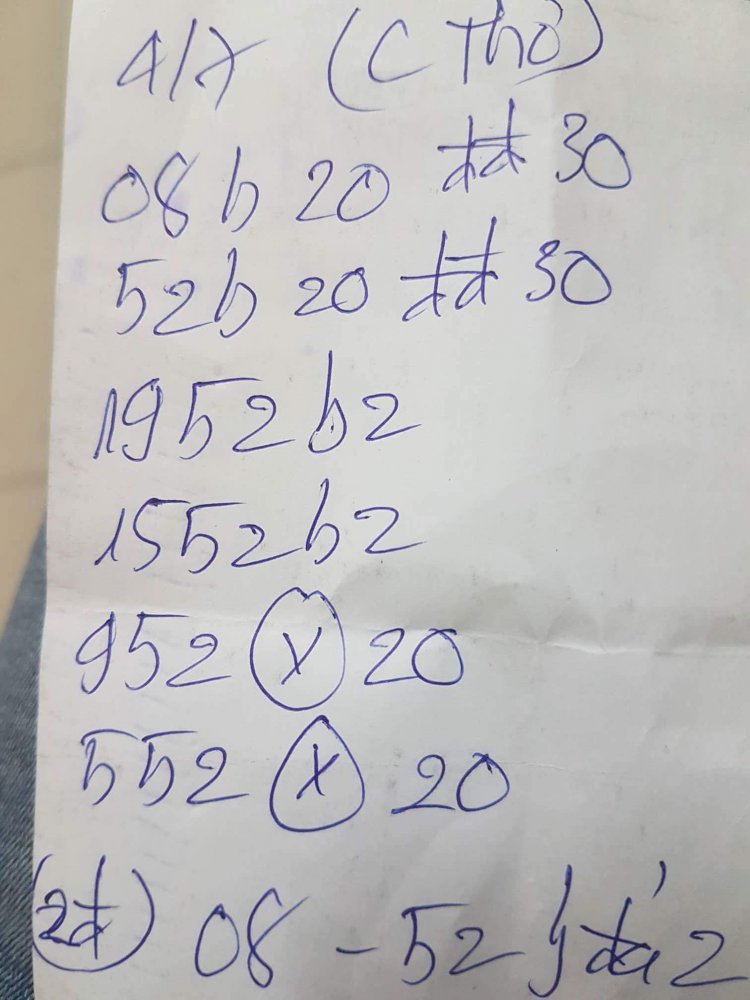 4/7 (C Thơ)
08 b 20 đđ 30
52 b 20 đđ 30
1952 b 2
1552 b 2
952 (x) 20
552 (x) 20
(2đ) 08 - 52 đá 2